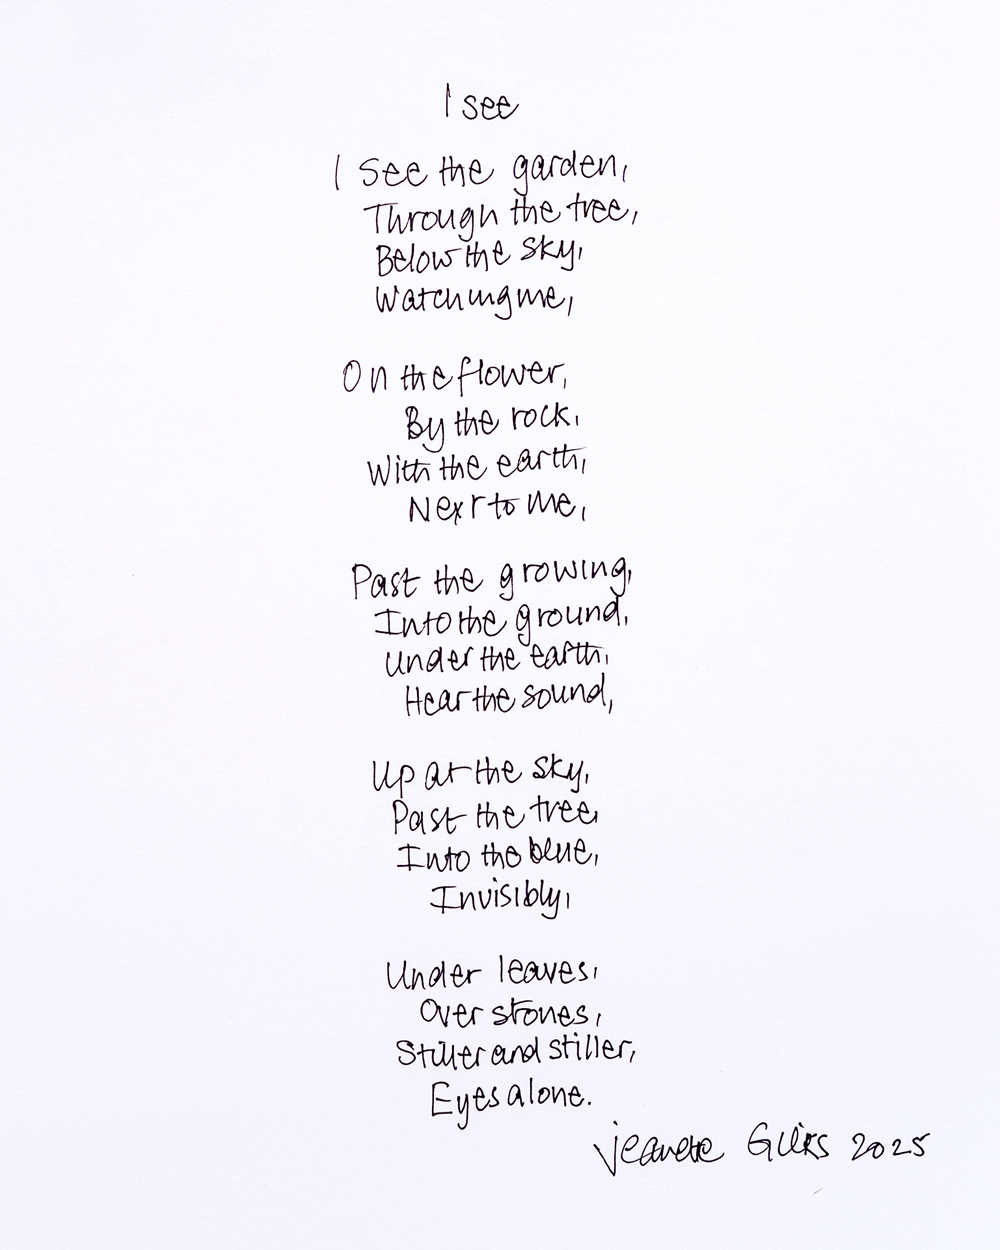 I see
I see the garden,
Through the tree,
Below the sky,
Watching me,
On the flower,
By the rock,
With the earth,
Next to me,
Past the growing,
Into the ground,
Under the earth,
Hear the sound,
Up at the sky,
Past the tree,
Into the blue,
Invisibly,
Under leaves,
Over stones,
Stiller and stiller,
Eyes alone.
2025